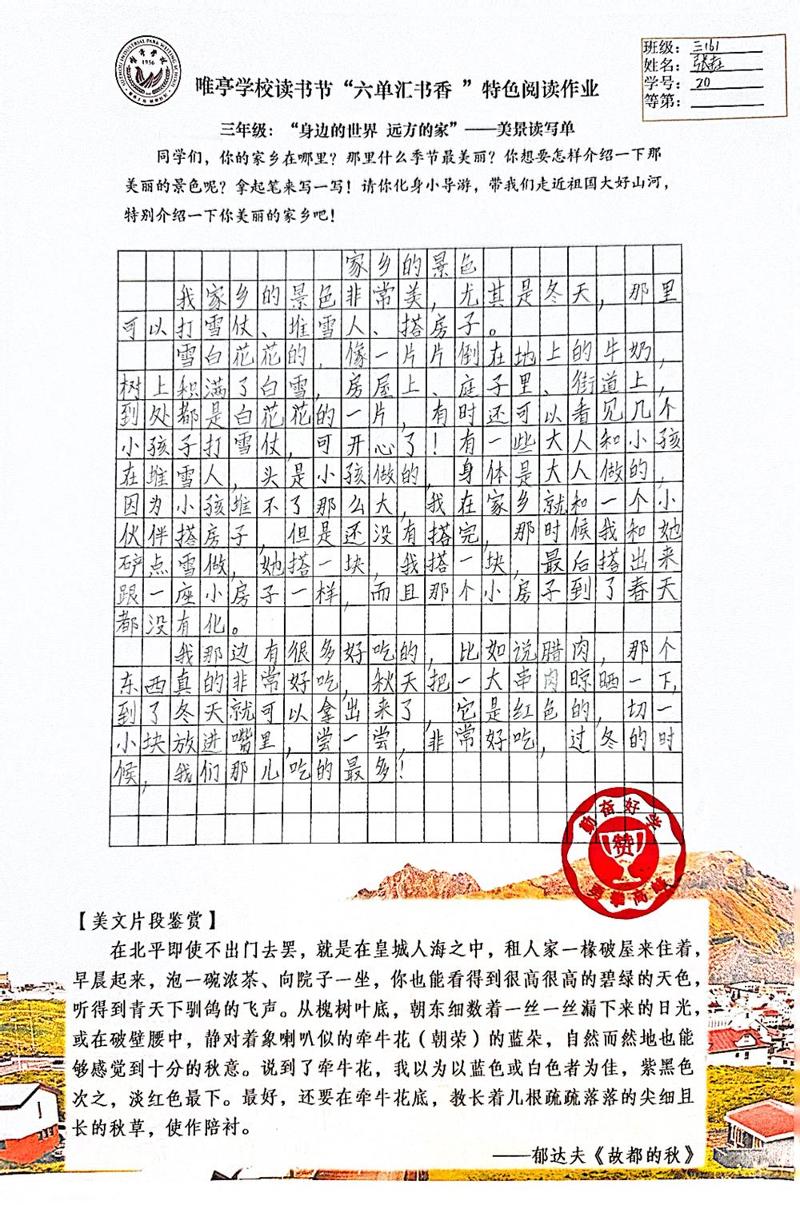 班级：三(6)
姓名：
学号：20
等第：
1956
唯亭学校读书节“六单汇书香 ”特色阅读作业
三年级：“身边的世界 远方的家”——美景读写单
同学们，你的家乡在哪里？那里什么季节最美丽？你想要怎样介绍一下那
美丽的景色呢？拿起笔来写一写！请你化身小导游，带我们走近祖国大好山河，
特别介绍一下你美丽的家乡吧！
家乡的景色
我家乡的景色非常美，尤其是冬天，那里
可以打雪仗、堆雪人、搭房子。
雪白花花的，像一片片倒在地上的牛奶，
树上积满了白雪，房屋上、庭子里、街道上，
到处都是白花花的一片，有时还可以看见几个
小孩子打雪仗，可开心了！有一些大人和小孩
在堆雪人，头是小孩做的，身体是大人做的，
因为小孩堆不了那么大，我在家乡就和一个小
伙伴搭房子，但是还没有搭完，那时候我和她
点雪做，她搭一块，我搭一块，最后搭出来
跟一座小房子一样，而且那个小房子到了春天
都没有化。
我那边有很多好吃的，比如说腊肉，那个
东西真的非常好吃，秋天把一大串肉晾晒一下，
到了冬天就可以拿出来了，它是红色的，切一
小块放进嘴里，尝一尝，非常好吃，过冬的时
候，我们那儿吃的最多！
勤奋好学
赞
勇攀高峰
【美文片段鉴赏】
在北平即使不出门去罢，就是在皇城人海之中，租人家一椽破屋来住着，
早晨起来，泡一碗浓茶、向院子一坐，你也能看得到很高很高的碧绿的天色，
听得到青天下驯鸽的飞声。从槐树叶底，朝东细数着一丝一丝漏下来的日光，
或在破壁腰中，静对着象喇叭似的牵牛花（朝荣）的蓝朵，自然而然地也能
够感觉到十分的秋意。说到了牵牛花，我以为以蓝色或白色者为佳，紫黑色
次之，淡红色最下。最好，还要在牵牛花底，教长着几根疏疏落落的尖细且
长的秋草，使作陪衬。
——郁达夫《故都的秋》